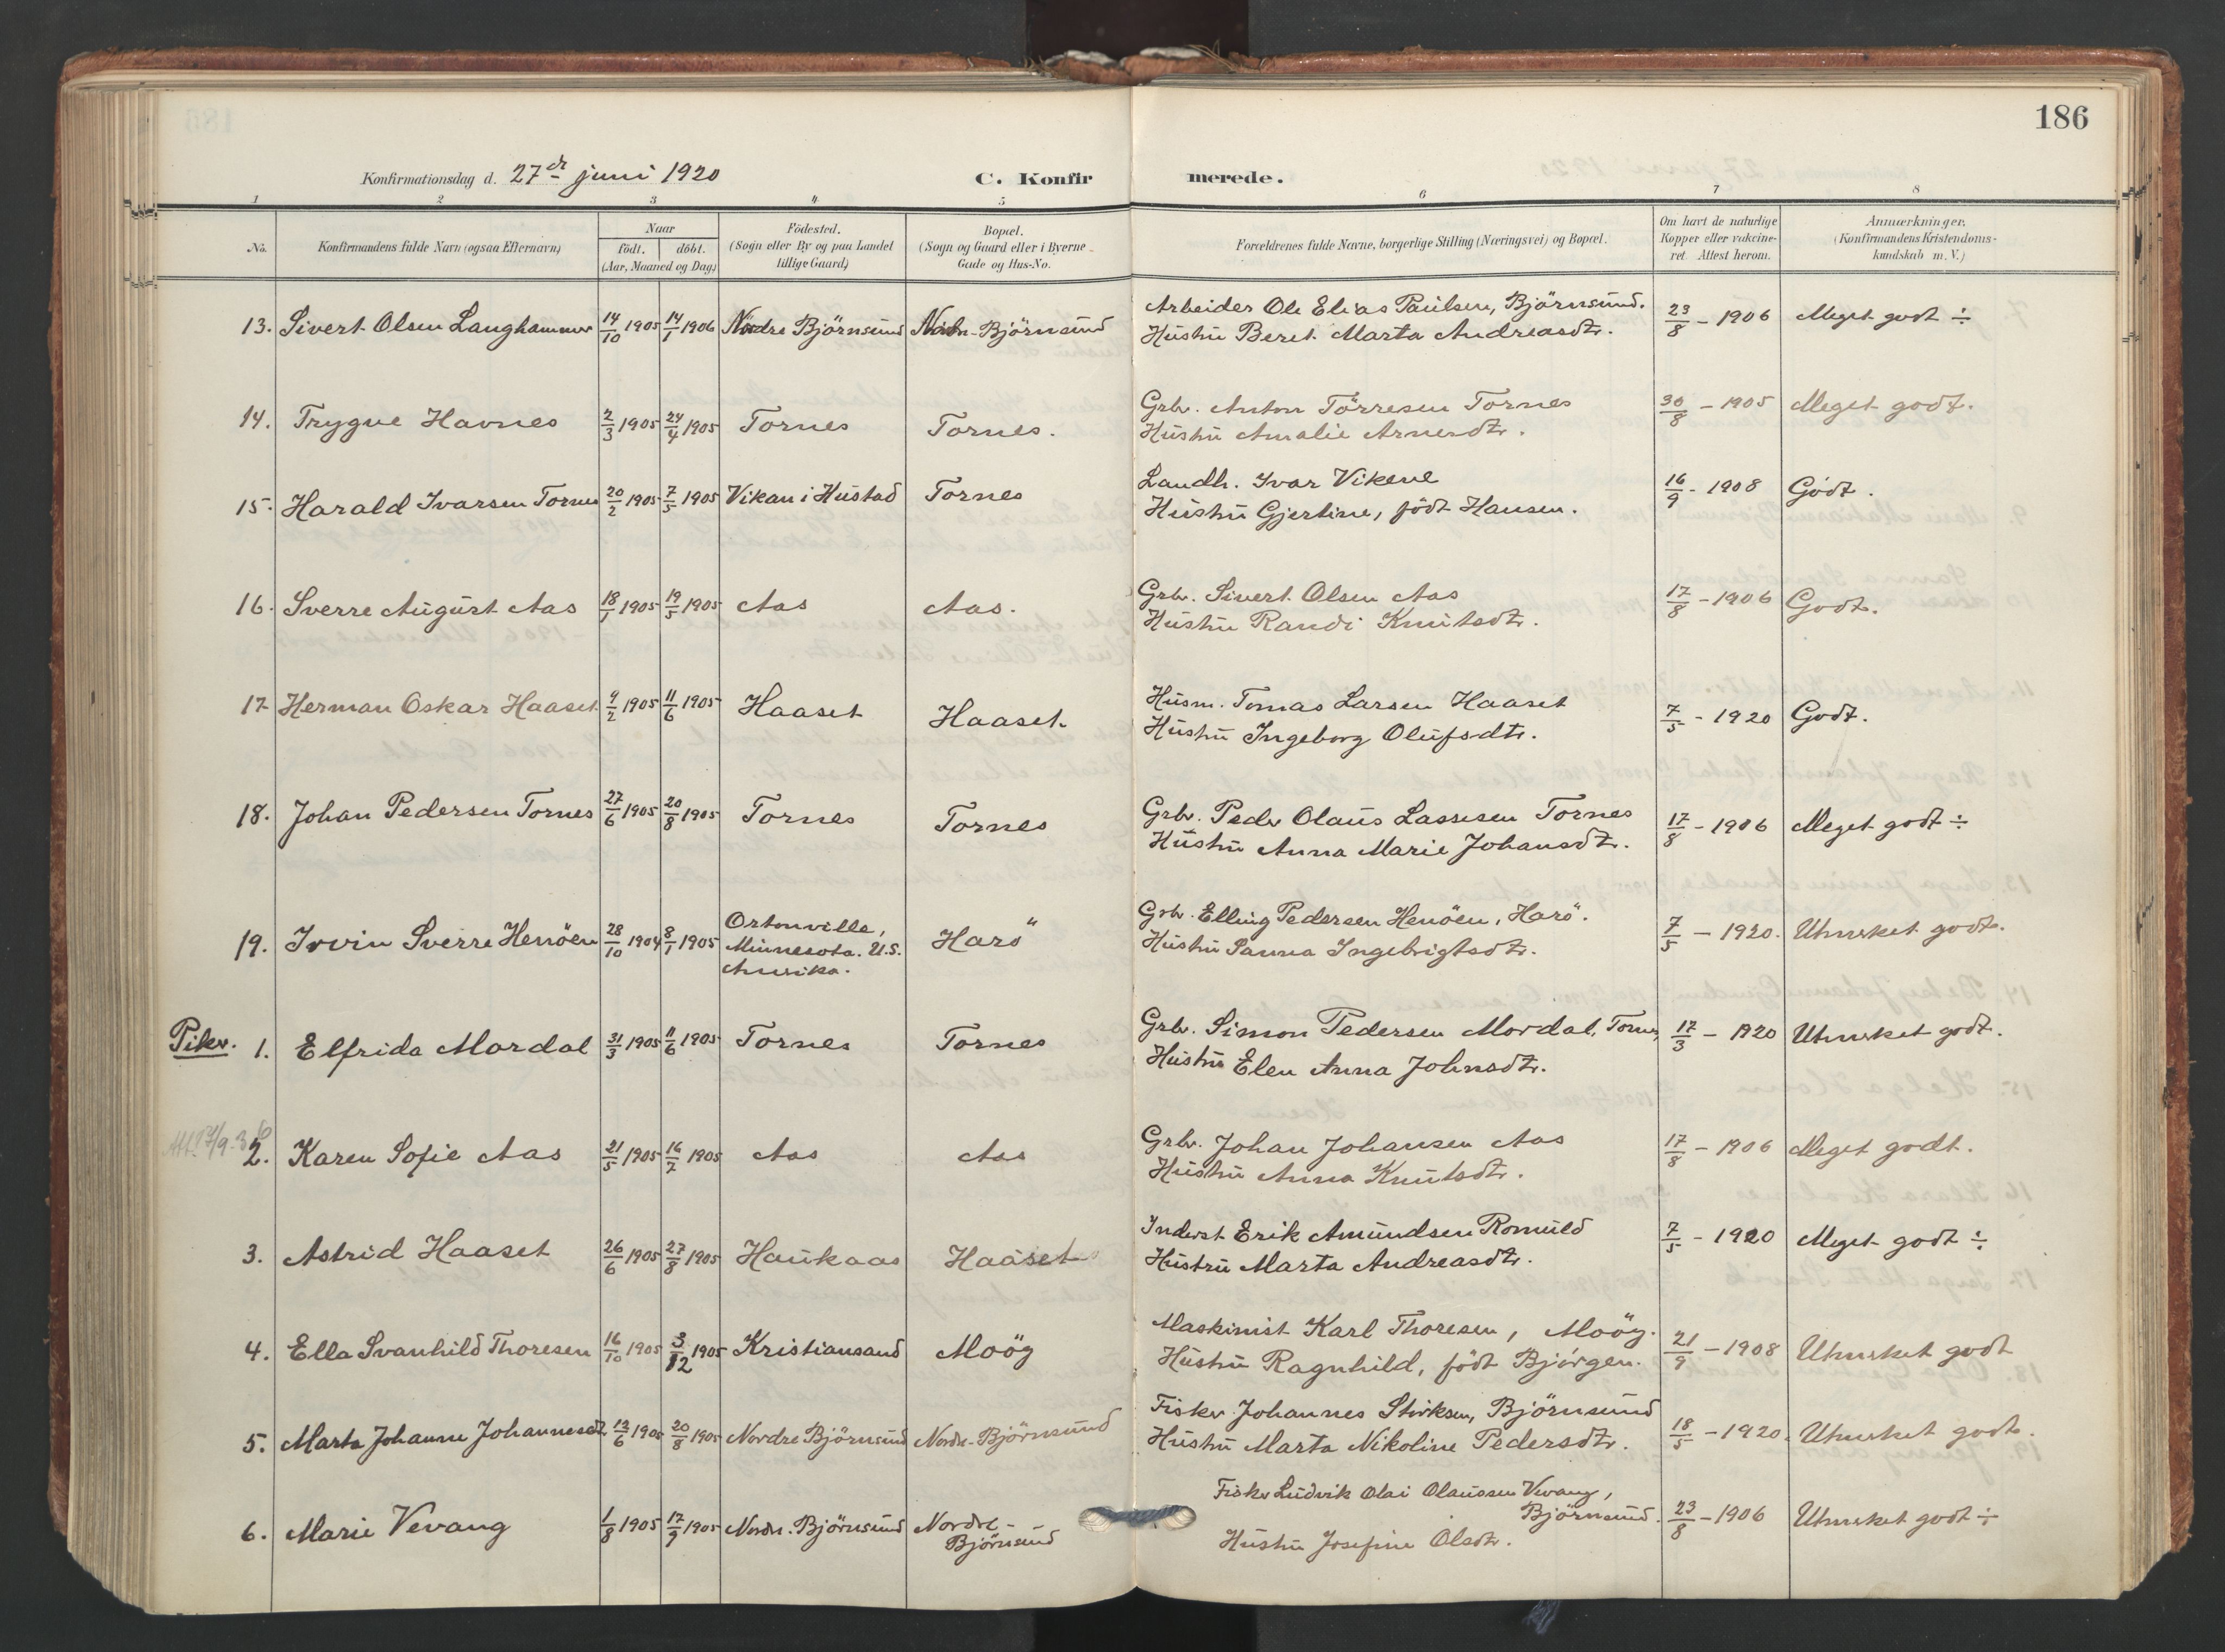 186
Konfirmationsdag d. 27de juni 1920
C. Konfirmerede.
1 2 3 4 5 6 7 8
No. Konfirmandens fulde Navn (ogsaa Efternavn) Naar födt. döbt. (Aar, Maaned og Dag) Födested. (Sogn eller By og paa Landet tillige Gaard) Bopæl. (Sogn og Gaard eller i Byerne Gade og Hus-No. Forældrenes fulde Navne, borgerlige Stilling (Næringsvei) og Bopæl. Om havt de naturlige Kopper eller vakcineret. Attest herom. Anmærkninger. (Konfirmandens Kristendomskundskab m. V.)
13. Sivert Olsen Langhammer 14/10 1905 14/1 1906 Nordre Björnsund Nordr. Björnsund Arbeider Ole Elias Paulsen, Björnsund. 23/8 - 1906 Meget godt ÷
Hustru Beret Marta Andreasdtr.
14. Trygve Havnes 2/3 1905 24/4 1905 Tornes Tornes. Grbr. Anton Törresen Tornes 30/8 - 1905 Meget godt.
Hustru Amalie Arnesdtr.
15. Harald Ivarsen Tornes 20/2 1905 7/5 1905 Vikan i Hustad Tornes Landh. Ivar Vikene 16/9 - 1908 Godt.
Hustru Gjertine, födt Hansen.
16. Sverre August Aas 18/1 1905 19/5 1905 Aas Aas. Grbr. Sivert Olsen Aas 17/8 - 1906 Godt.
Hustru Randi Knutsdtr.
17 Herman Oskar Haaset 9/2 1905 11/6 1905 Haaset Haaset. Husm. Tomas Larsen Haaset 7/5 - 1920 Godt.
Hustru Ingeborg Olufsdtr.
18. Johan Pedersen Tornes 27/6 1905 20/8 1905 Tornes Tornes Grbr. Peder Olaus Lassesen Tornes 17/8 - 1906 Meget godt ÷
Hustru Anna Marie Johansdtr.
19. Irvin Sverre Henöen 28/10 1904 8/1 1905 Ortonville, Minnesota. U.S. Amerika. Harö Grbr. Elling Pedersen Henöen, Harö. 7/5 - 1920. Utmerket godt.
Hustru Sanna Ingebrigtsdtr.
Piker. 1. Elfrida Mordal 31/3 1905 11/6 1905 Tornes Tornes Grbr. Simon Pedersen Mordal, Tornes 17/3 - 1920 Utmerket godt.
Hustru Elen Anna Johnsdtr.
2. Karen Sofie Aas 21/5 1905 16/7 1905 Aas Aas Grbr. Johan Johansen Aas 17/8 - 1906 Meget godt.
Hustru Anna Knutsdtr.
3. Astrid Haaset 26/6 1905 27/8 1905 Haukaas Haaset Inderst Erik Amundsen Romuld 7/5 - 1920 Meget godt ÷
Hustru Marta Andreasdtr.
4. Ella Svanhild Thoresen 16/10 1905 3/12 1905 Kristiansand Moög Maskinist Karl Thoresen, Moög. 21/9 - 1908 Utmerket godt
Hustru Ragnhild, födt Bjørgen.
5. Marta Johanne Johannesdtr 12/6 1905 20/8 1905 Nordre Björnsund Nordr. Björnsund Fisker Johannes Sivksen, Björnsund 18/5 - 1920. Utmerket godt.
Hustru Marta Nikoline Pedersdtr.
6. Marie Vevang 1/8 1905 17/9 1905 Nordr. Björnsund Nordre-Björnsund Fisker Ludvik Olai Olaussen Vevang, Björnsund. 23/8 - 1906 Utmerket godt ÷
Hustru Josefine Olsdtr.